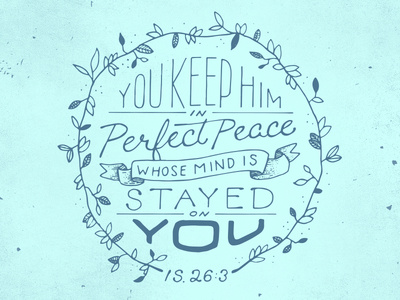 YOU KEEP HIM
IN
Perfect Peace
WHOSE MIND IS
STAYED
ON
YOU
IS. 26:3